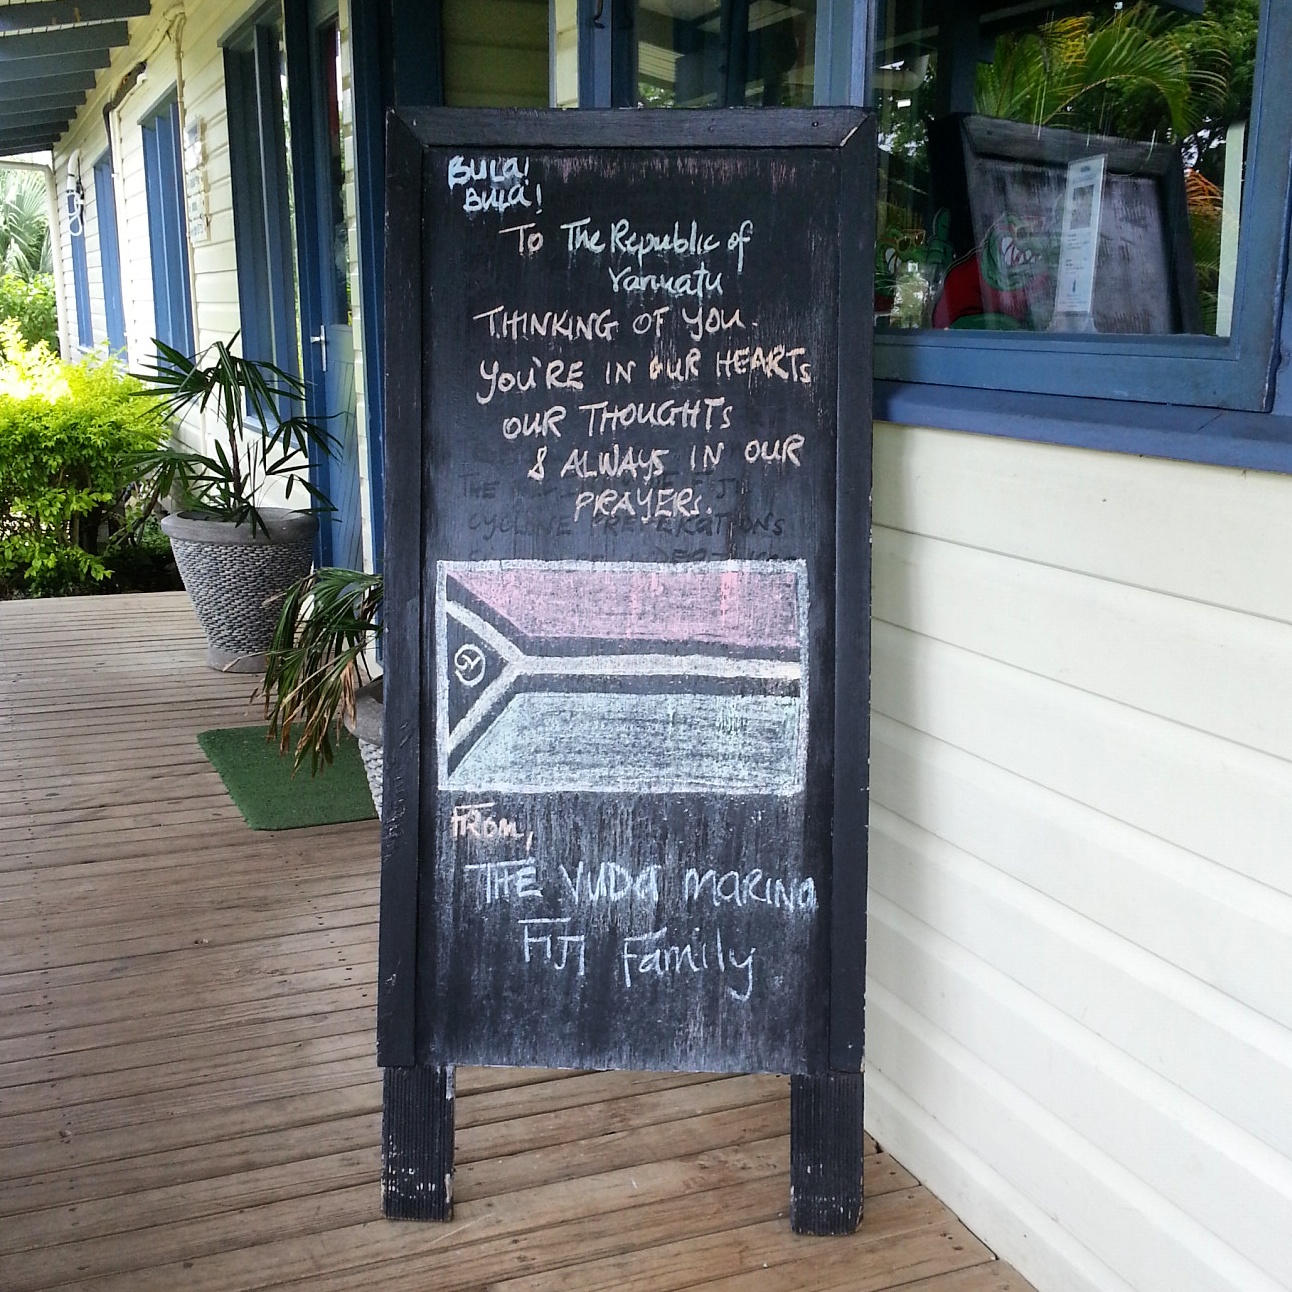 BULA!
BULA!
To The Republic of
Vanuatu
THINKING OF YOU.
YOU'RE IN OUR HEARTS
OUR THOUGHTS
& ALWAYS IN OUR
PRAYERS.
THE
CYCLONE PREPERATIONS
FROM,
THE VUDA MARINA
FIJI Family